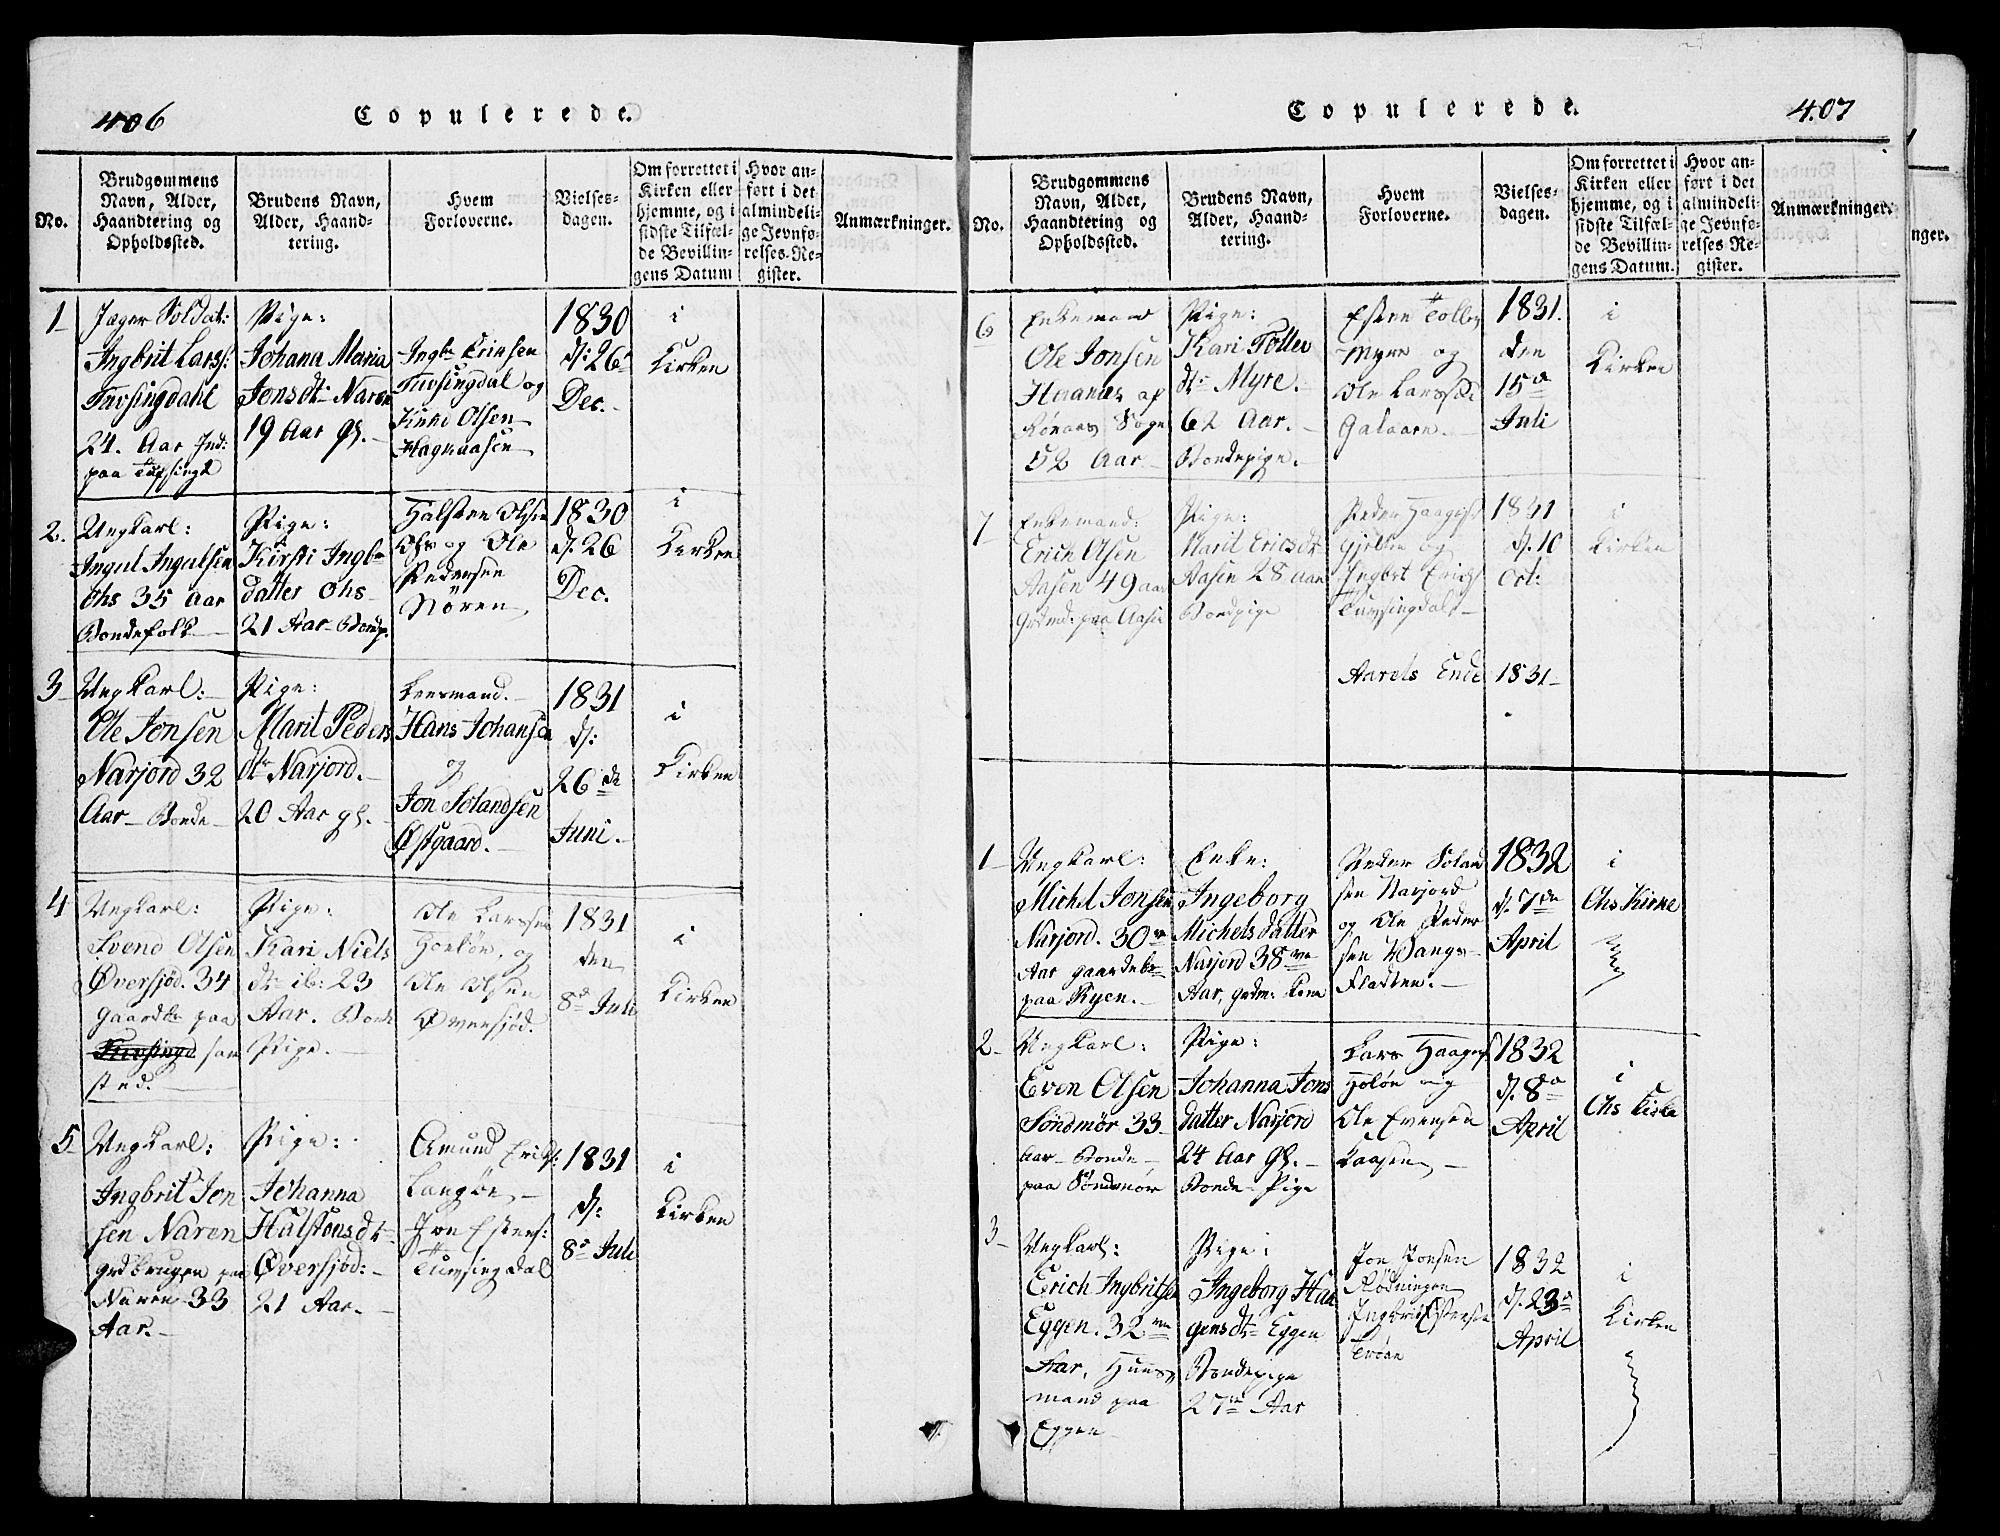 406
Copulerede.
No.
Brudgommens
Navn, Alder,
Haandtering og
Opholdssted.
Brudens Navn,
Alder, Haand-
tering.
Hvem
Forloverne.
Vielses-
dagen.
Om forrettet i
Kirken eller
hjemme, og i
sidste Tilfæl-
de Bevillin-
gens Datum
Hvor an-
ført i det
almindeli-
ge Jevnfø-
relses-Re-
gister.
Anmærkninger.
1
Jæger Soldat:
Ingbrit Lars:
Tufsingdahl
24. Aar Ind:
paa
Pige:
Johana Maria
Jonsdt: Naren
19 Aar gl.
Ingbr.
Tufsingdal og
Knud Olsen
Hagnaasen
1830
d: 26
Dec.
i
Kirken
2.
Ungkarl:
Ingul Ingulsen
Ohs 35 Aar
Bondefolk
Pige:
Kirsti Ingbr
datter Ohs
21 Aar Bondp.
Halsten Olsen
Ohs og Ole
Pedersen
Nören
1830
d. 26
Dec.
i
Kirken
3
Ungkarl:
Ole Jonsen
Narjord 32
Aar Bonde
Pige:
Marit Peders
dtr Narjord.
20 Aar gl.
Lensmand
Hans Johansen
og
Jon Solandsen
Østgaard.
1831
d:
26 de
Juni.
i
Kirken
4
Ungkarl:
Svend Olsen
Øversjöd. 34
Gaardbr paa
sam
sted.
Pige:
Kari Niels
dtr ib: 23
Aar. Bonde
Pige.
Ole Larssen
Holöen, og
Ole Olsen
Øversjöd.
1831
den
8d Juli
i
Kirken
5
Ungkarl:
Ingbrit Jon
sen Naren
grdbruger paa
Naren 33
Aar.
Pige:
Johanna
Halstensdt
Øversjöd:
21 Aar.
Amund Erichs:
Langöen
Jon Estens:
Tufsingdal
1831
d:
8d Juli
i
Kirken
Copulerede.
407
No.
Brudgommens
Navn, Alder,
Haandtering og
Opholdssted.
Brudens Navn,
Alder, Haand-
tering.
Hvem
Forloverne.
Vielses-
dagen.
Om forrettet i
Kirken eller
hjemme, og i
sidste Tilfæl-
de Bevillin-
gens Datum.
Hvor an-
ført i det
almindeli-
ge Jevnfø-
relses Re-
gister.
Anmærkninger.
nger.
6
Enkemand
Ole Jonsen
af
Röraas Sogn
52 Aar
Pige:
Kari Tolles
dtr Myre.
62 Aar.
Bondepige.
Esten Tolles
Myre og
Ole Larssen
Galaaen.
1831.
den
15de
Juli
i
Kirken
7
Enkemand:
Erich Olsen
Aasen 49 aar
Grdmd: paa Aasen
Pige:
Marit Ericsdt
Aasen 28 Aar
Bondpige
Peder Haagens
Gjelten og
Ingbrt Erichs
Tufsingdal
1831
d. 10
Oct:
i
Kirken
Aarets Ende 1831
1
Ungkarl:
Michel Jonsen
Narjord. 30
Aar Gaardebr
paa Ryen.
Enke:
Ingeborg
Michels datter
Narjord 38
Aar, grdm: Kone
Peder Soland
sen Narjord
og Ole Peder
sen Vangs
Fladten.
1832
d. 7de
April
i
Ohs Kirke
2
Ungkarl:
Even Olsen
Söndmör 33
Aar Bonde
paa Söndmör
Pige:
Johanna Jons
datter Narjord
24 Aar gl.
Bonde Pige
Lars Haagens
Holöen og
Ole Evensen
Laasen
1832
d. 8de
April
i
Ohs Kirke
3
Ungkarl:
Erich Ingbritsen
Eggen. 32
Aar, Huus
mand paa
Eggen
Pige:
Ingeborg Haa
gensdtr Eggen
Bondepige
27 Aar
Jon Jonsen
Rödningen
Ingbrit Estensen
Tröen
1832
d. 23
April
i
Kirken